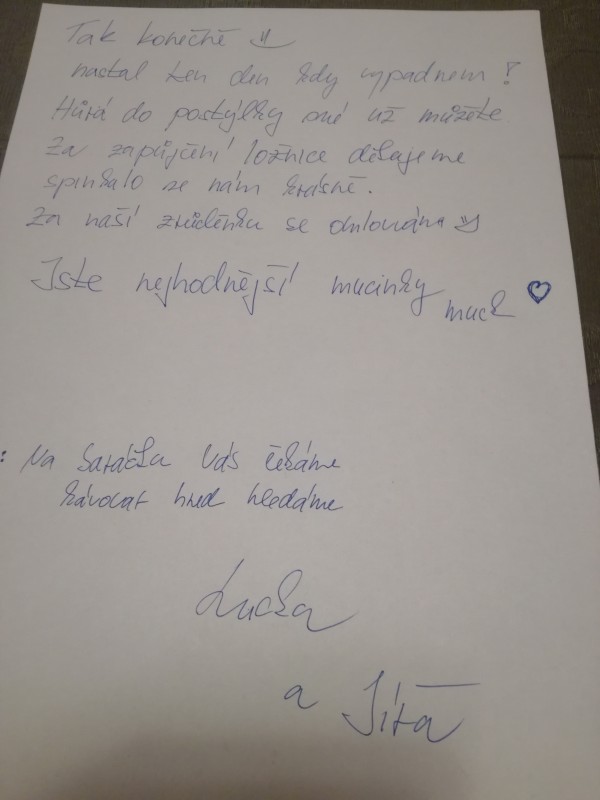 Tak konečně
nastal ten den kdy vypadnem!
Hůrá do postýlky své už můžete
Za zapůjčení ložnice děkujeme
spinkalo se nám krásně.
Za naší zvuděnku se omlouváme
Jste nejhodnější mucinky
muck ♡
: Na baráčku Vás čekáme
kávovar hned hledáme
Lucka
a Jíťa